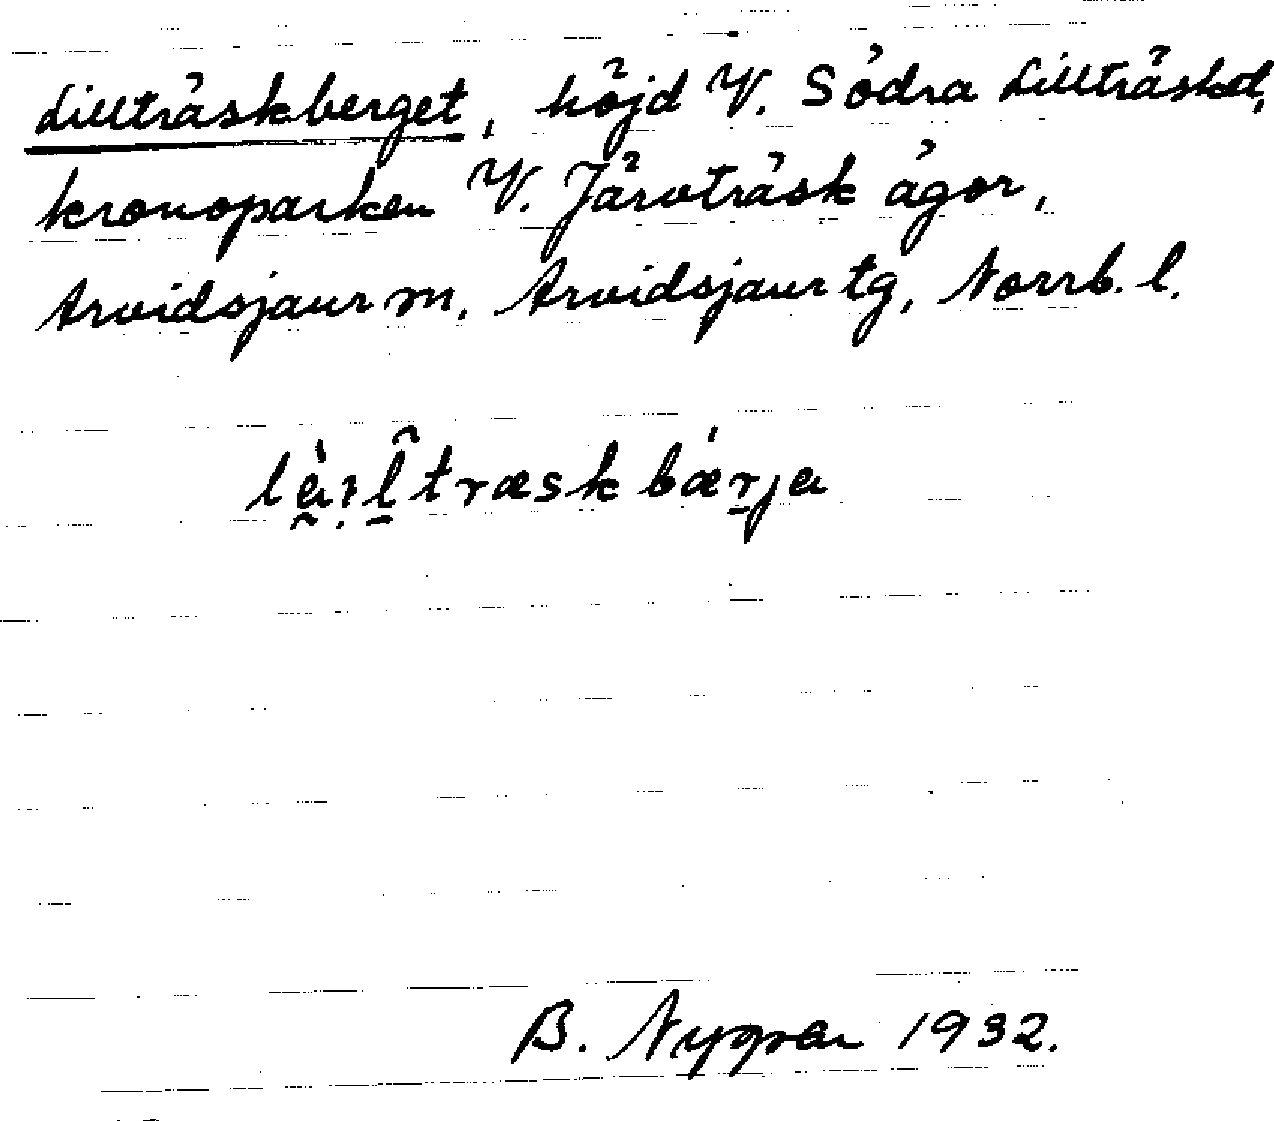 Lillträskberget, höjd V. Södra Lillträsket,
kronoparken V. Järvträsk ägor,
Arvidsjaur m. Arvidsjaur tg, Norrb. l.
träskbärja
B. Nygren 1932.